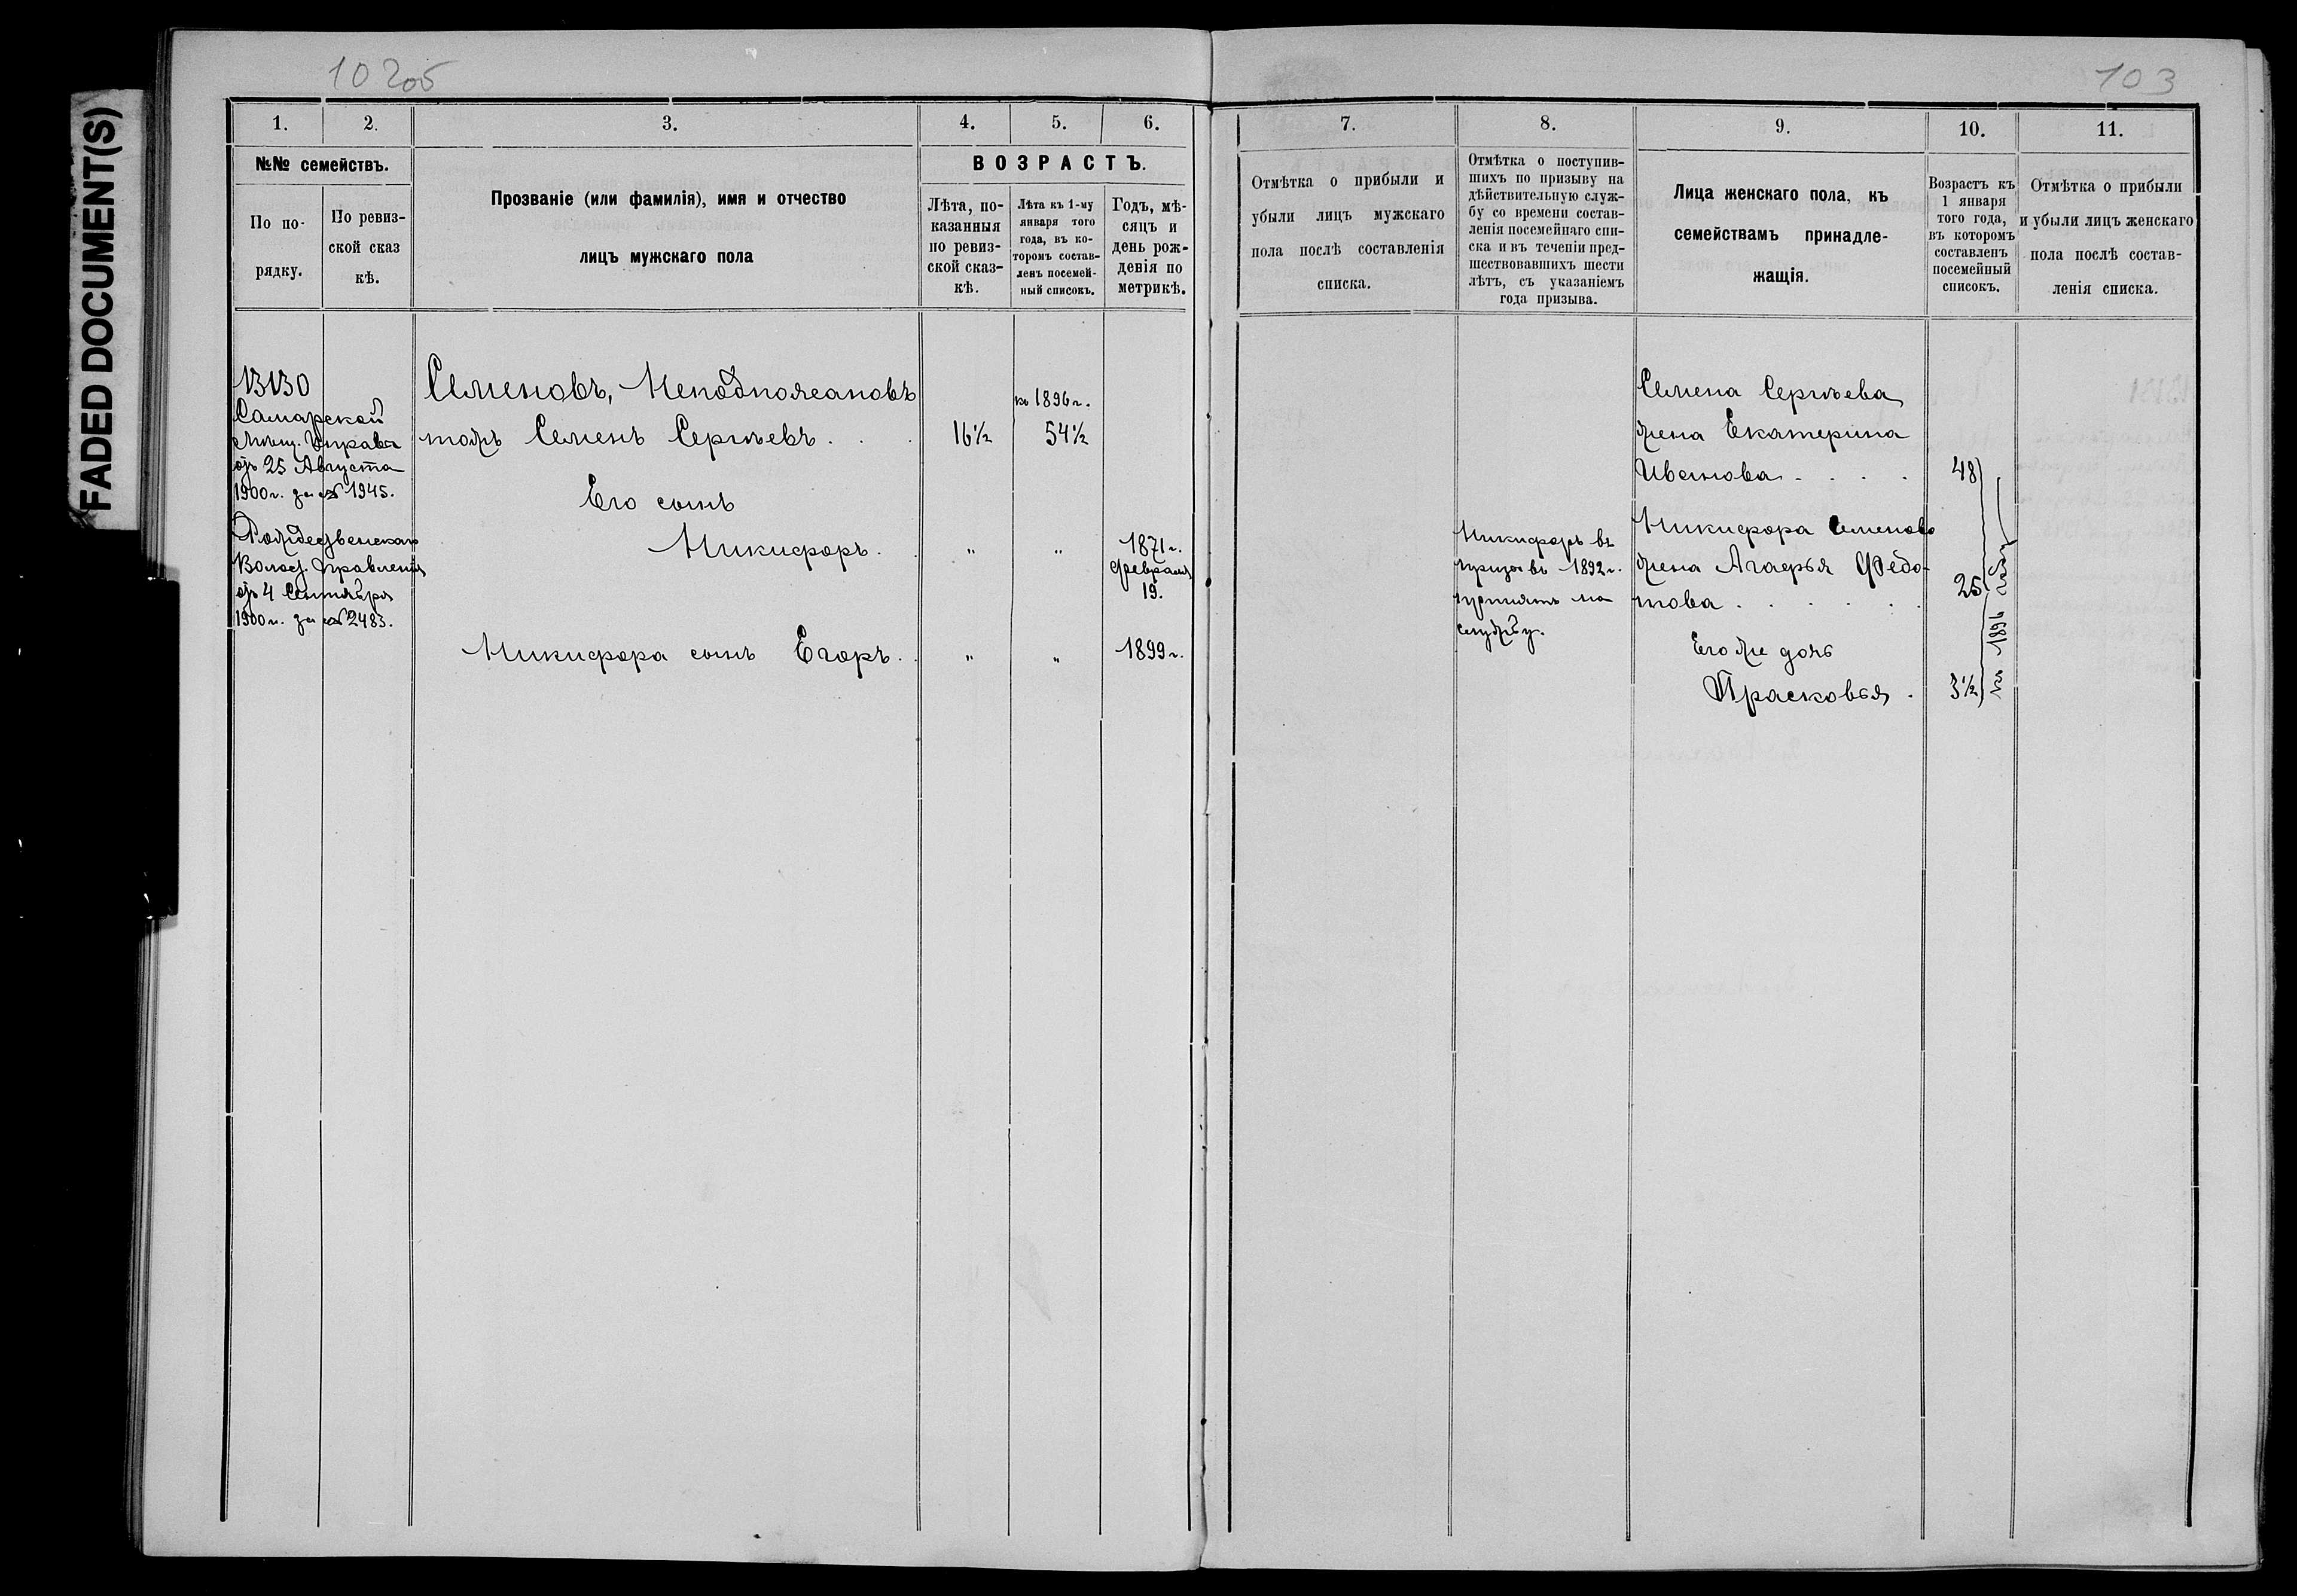 FADED DOCUMENT(S)
102об
103
1.
2.
3.
4.
5.
6.
№№ семействъ.
По по-
рядку.
По ревиз-
ской сказ
кѣ.
Прозваніе (или фамилія), имя и отчество
лицъ мужскаго пола
ВОЗРАСТЪ.
Лѣта, по-
казанныя
по ревиз-
ской сказ-
кѣ.
Лѣта къ 1-му
января того
года, въ ко-
торомъ состав-
ленъ посемей-
ный списокъ.
Годъ, мѣ-
сяцъ и
день рож-
денія по
метрикѣ.
13130
Самарской
Мѣщ. Управы
отъ 25 Августа
1900 г. за № 1945.
Рождественскаго
Волост. Правленія
отъ 4 Сентября
1900 г. за № 2483.
Семеновъ, Неподпоясановъ
тожъ Семенъ Сергѣевъ . . .
16½
къ 1896 г.
54½
Его сынъ
Никифоръ. .
„
„
1871 г.
Февраля
19.
Никифора сынъ Егоръ. .
„
„
1899 г.
7.
8.
9.
10.
11.
Отмѣтка о прибыли и
убыли лицъ мужскаго
пола послѣ составленія
списка.
Отмѣтка о поступив-
шихъ по призыву на
дѣйствительную служ-
бу со времени состав-
ленія посемейнаго спи-
ска и въ теченіи пред-
шествовавшихъ шести
лѣтъ, съ указаніемъ
года призыва.
Лица женскаго пола, къ
семействамъ принадле-
жащія.
Возрастъ къ
1 января
того года,
въ которомъ
составленъ
посемейный
списокъ.
Отмѣтка о прибыли
и убыли лицъ женскаго
пола послѣ состав-
ленія списка.
Никифоръ въ
призывъ 1892 г.
принятъ на
службу.
Семена Сергѣева
жена Екатерина
Иванова . . . .
48
Никифора Семенова
жена Агафья Федо-
това . . . . . .
25
Его же дочь
Прасковья .
3½
къ 1896 году